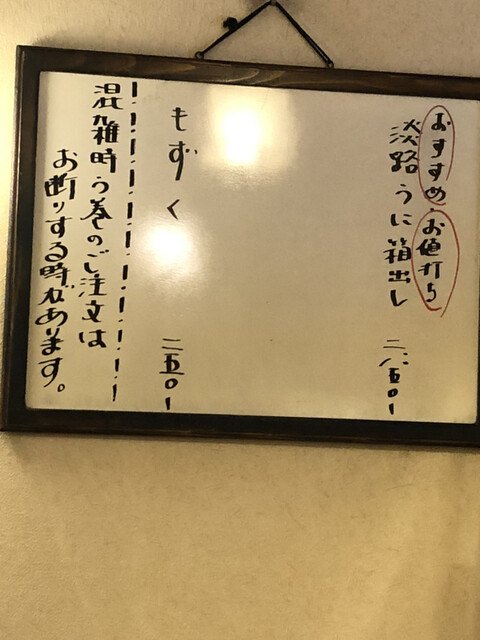 おすすめ お値打ち
淡路うに箱出し 二六五〇ー
もずく 二五〇ー
混雑時う巻のご注文は
お断りする時があります。